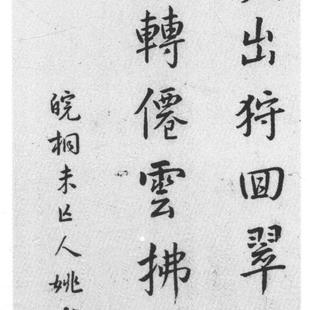 出狩回翠
轉僊雲拂
皖桐未亡人姚